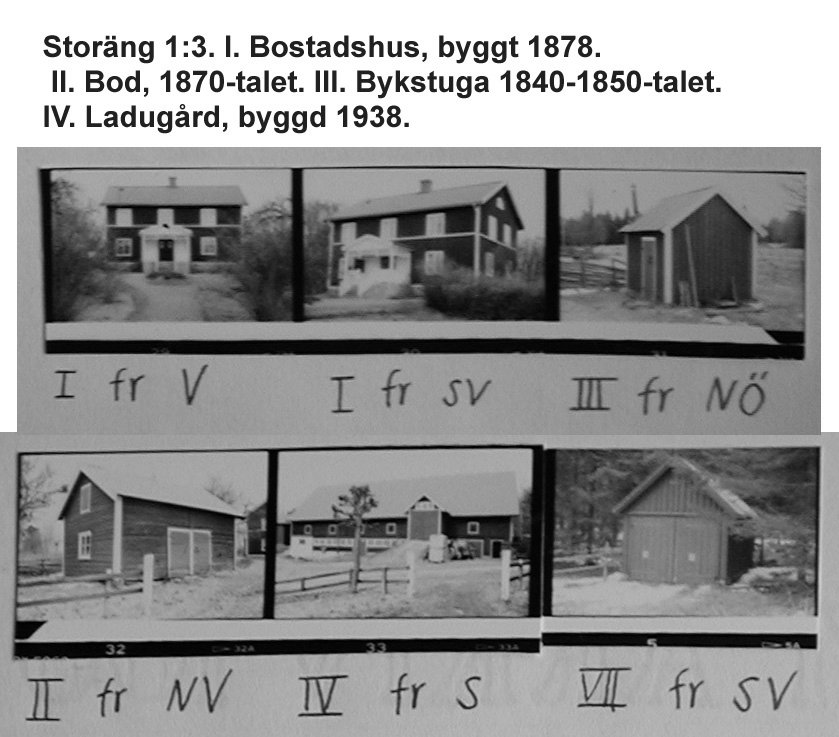 Storäng 1:3. I. Bostadshus, byggt 1878.
II. Bod, 1870-talet. III. Bykstuga 1840-1850-talet.
IV. Ladugård, byggd 1938.
I fr V
I fr SV
III fr NÖ
32
32A
33
33A
5
5A
II fr NV
IV fr S
VII fr SV